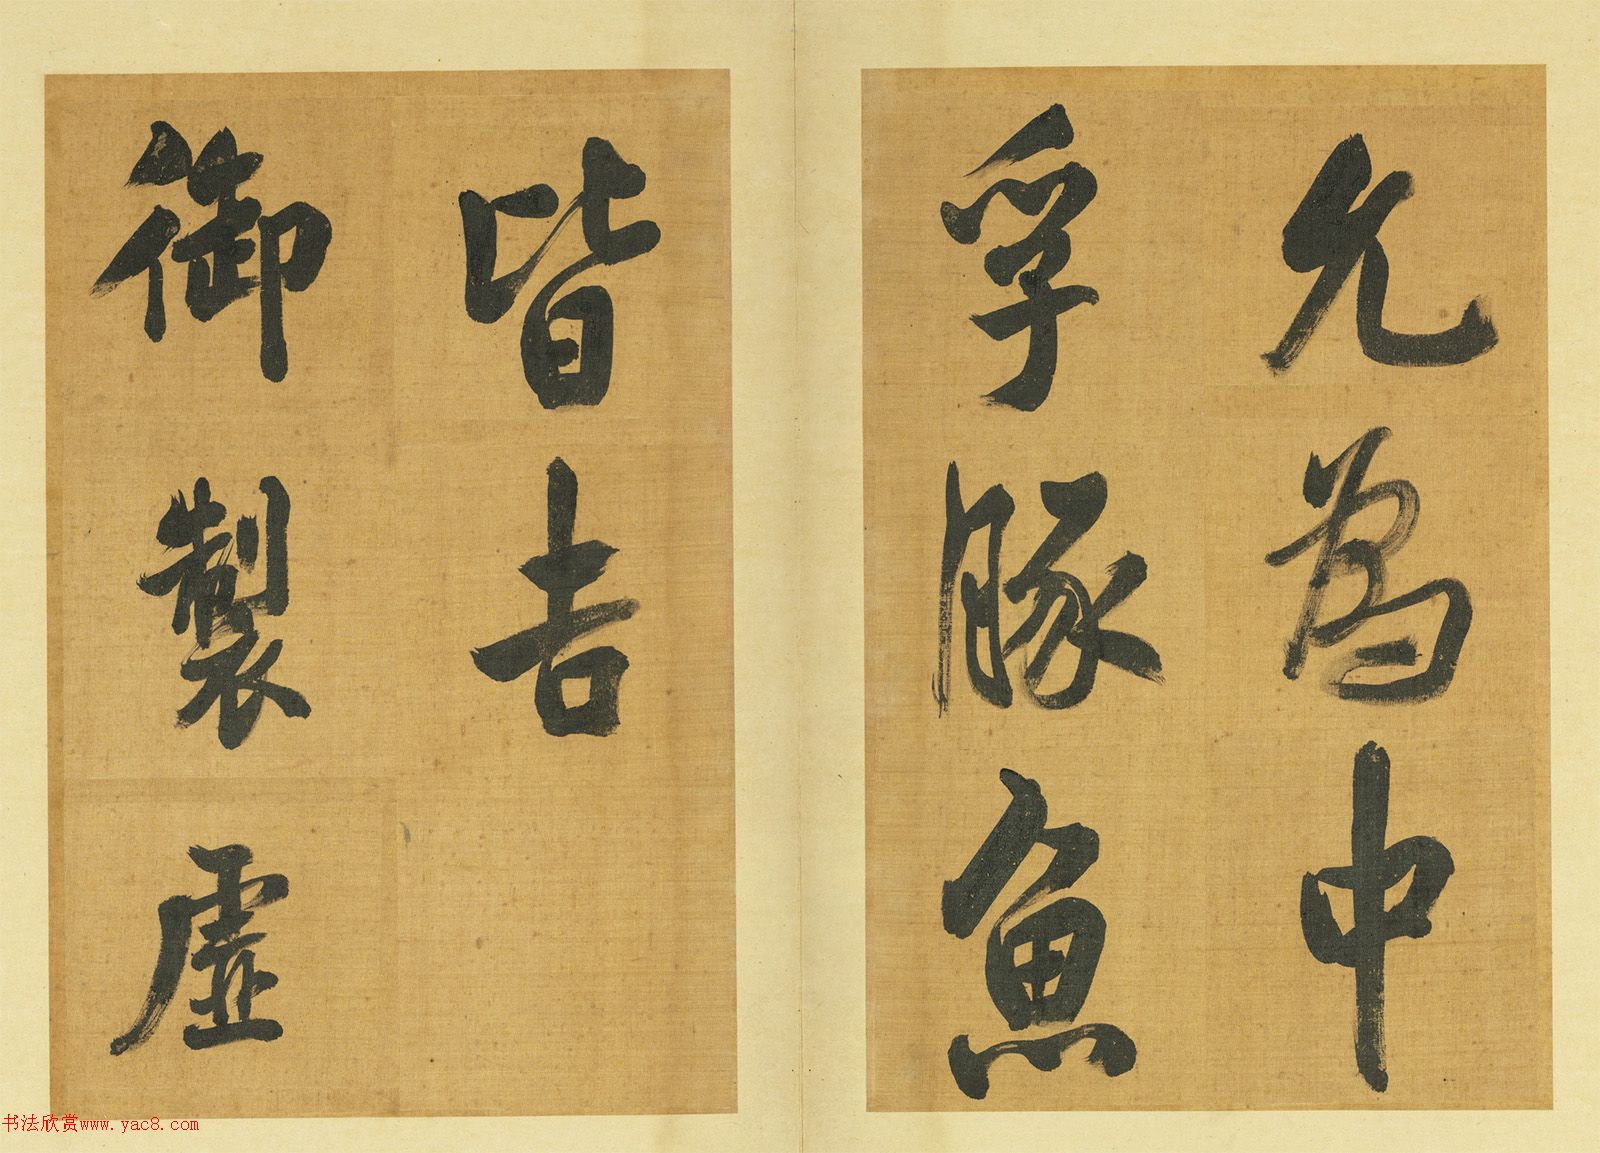 允為中
孚豚魚
皆吉
御製虛
书法欣赏www.yac8.com